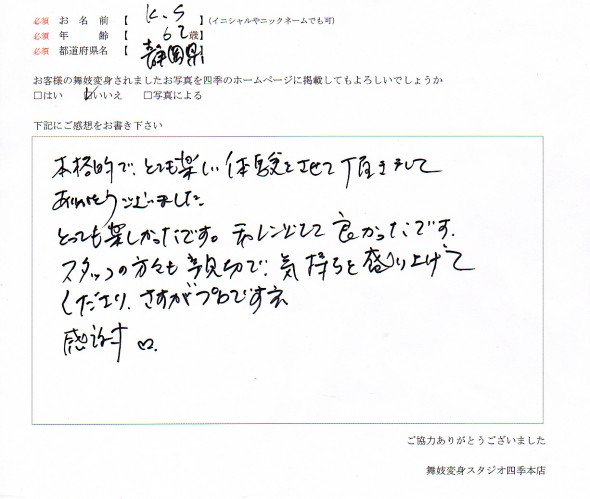 必須 お 名 前 【 K.S 】(イニシャルやニックネームでも可)
必須 年 齢 【 62歳】
必須 都道府県名 【 静岡県】
お客様の舞妓変身されましたお写真を四季のホームページに掲載してもよろしいでしょうか
□はい ☑いいえ □写真による
下記にご感想をお書き下さい
本格的で、とても楽しい体験をさせて頂きまして
ありがとうございました
とっても楽しかったです。チャレンジして良かったです.
スタッフの方々も親切で、気持ちを盛り上げて
くださり、さすがプロですネ
感謝す
ご協力ありがとうございました
舞妓変身スタジオ四季本店